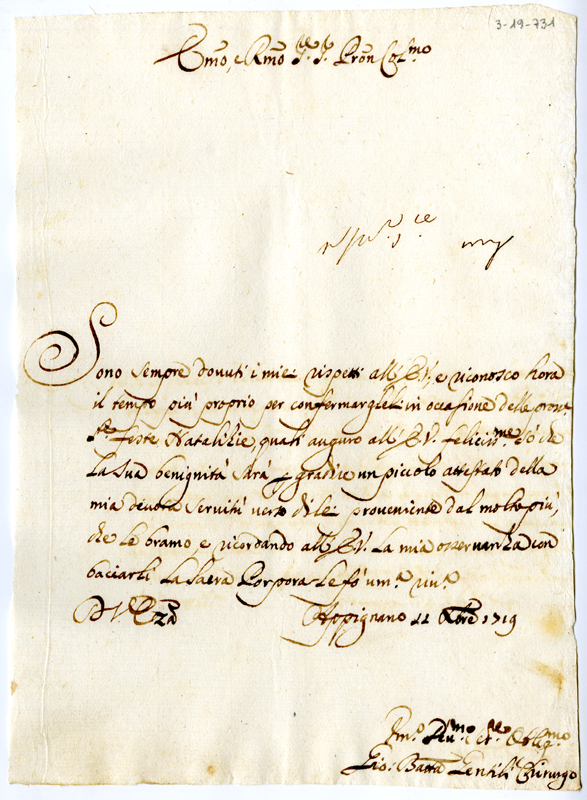 3-19-731
Emo, e Rmo Sr. Sr. Pron Col.mo
Sono sempre dovuti i miei rispetti all'E.V., e riconosco hora
il tempo più proprio per confermarglieli in occasione delle pross.
S.te feste Natalizie, quali auguro all'E.V. feliciss.me. Sò che
la sua benignità sarà p gradire un piccolo attestato della
mia devota servitù verso di lei proveniente dal molto più,
che le bramo, e ricordando all'E.V. la mia osservanza con
baciarli la Sacra Porpora le fò um.a riv.a
D V Emza Appignano 11 Xbre 1719
Um.o Dev.mo et Oblig.mo
Gio: Batta Gentili Chirurgo